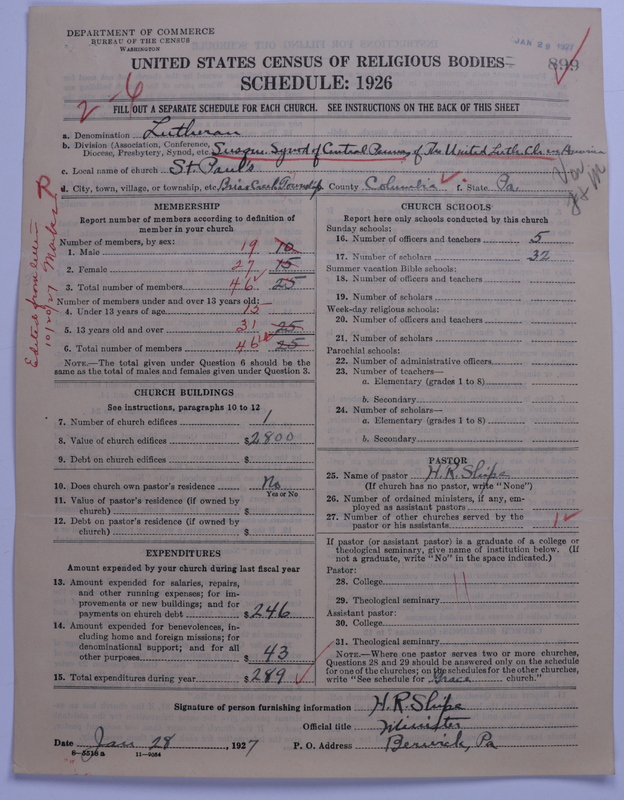 DEPARTMENT OF COMMERCE
BUREAU OF THE CENSUS
WASHINGTON
JAN 29 1927
899
UNITED STATES CENSUS OF RELIGIOUS BODIES
SCHEDULE: 1926
2-6
FILL OUT A SEPARATE SCHEDULE FOR EACH CHURCH. SEE INSTRUCTIONS ON THE BACK OF THIS SHEET
a. Denomination Lutheran
b. Division (Association, Conference, Diocese, Presbytery, Synod, etc. Susque. Synod of Central Penna. of The United Luth. Ch. in America
c. Local name of church St. Paul's
d. City, town, village, or township, etc. Briar Creek Township County Columbia f. State Pa.
MEMBERSHIP
Report number of members according to definition of
member in your church
Number of members, by sex:
1. Male 19 10
2. Female 27 15
3. Total number of members 46 25
Number of members under and over 13 years old:
4. Under 13 years of age 15
5. 13 years old and over 31 25
6. Total number of members 46 25
NOTE.—The total given under Question 6 should be the
same as the total of males and females given under Question 3.
Edited from letter
10/20/27
CHURCH BUILDINGS
See instructions, paragraphs 10 to 12
7. Number of church edifices 1
8. Value of church edifices $2800
9. Debt on church edifices $
10. Does church own pastor's residence No
Yes or No
11. Value of pastor's residence (if owned by
church) $
12. Debt on pastor's residence (if owned by
church) $
EXPENDITURES
Amount expended by your church during last fiscal year
13. Amount expended for salaries, repairs,
and other running expenses; for im-
provements or new buildings; and for
payments on church debt $246
14. Amount expended for benevolences, in-
cluding home and foreign missions; for
denominational support; and for all
other purposes $43
15. Total expenditures during year $289
CHURCH SCHOOLS
Report here only schools conducted by this church
Sunday schools:
16. Number of officers and teachers 5
17. Number of scholars 32
Summer vacation Bible schools:
18. Number of officers and teachers
19. Number of scholars
Week-day religious schools:
20. Number of officers and teachers
21. Number of scholars
Parochial schools:
22. Number of administrative officers
23. Number of teachers—
a. Elementary (grades 1 to 8)
b. Secondary
24. Number of scholars—
a. Elementary (grades 1 to 8)
b. Secondary
PASTOR
25. Name of pastor H.R. Shipe
(If church has no pastor, write "None")
26. Number of ordained ministers, if any, em-
ployed as assistant pastors
27. Number of other churches served by the
pastor or his assistants 1
If pastor (or assistant pastor) is a graduate of a college or
theological seminary, give name of institution below. (If
not a graduate, write "No" in the space indicated.)
Pastor:
28. College
29. Theological seminary
Assistant pastor:
30. College
31. Theological seminary
NOTE.—Where one pastor serves two or more churches,
Questions 28 and 29 should be answered only on the schedule
for one of the churches; on the schedules for the other churches,
write "See schedule for Grace church."
Signature of person furnishing information H.R. Shipe
Official title Minister
Date Jan 28, 1927 P. O. Address Berwick, Pa
8—5518a 11—9054